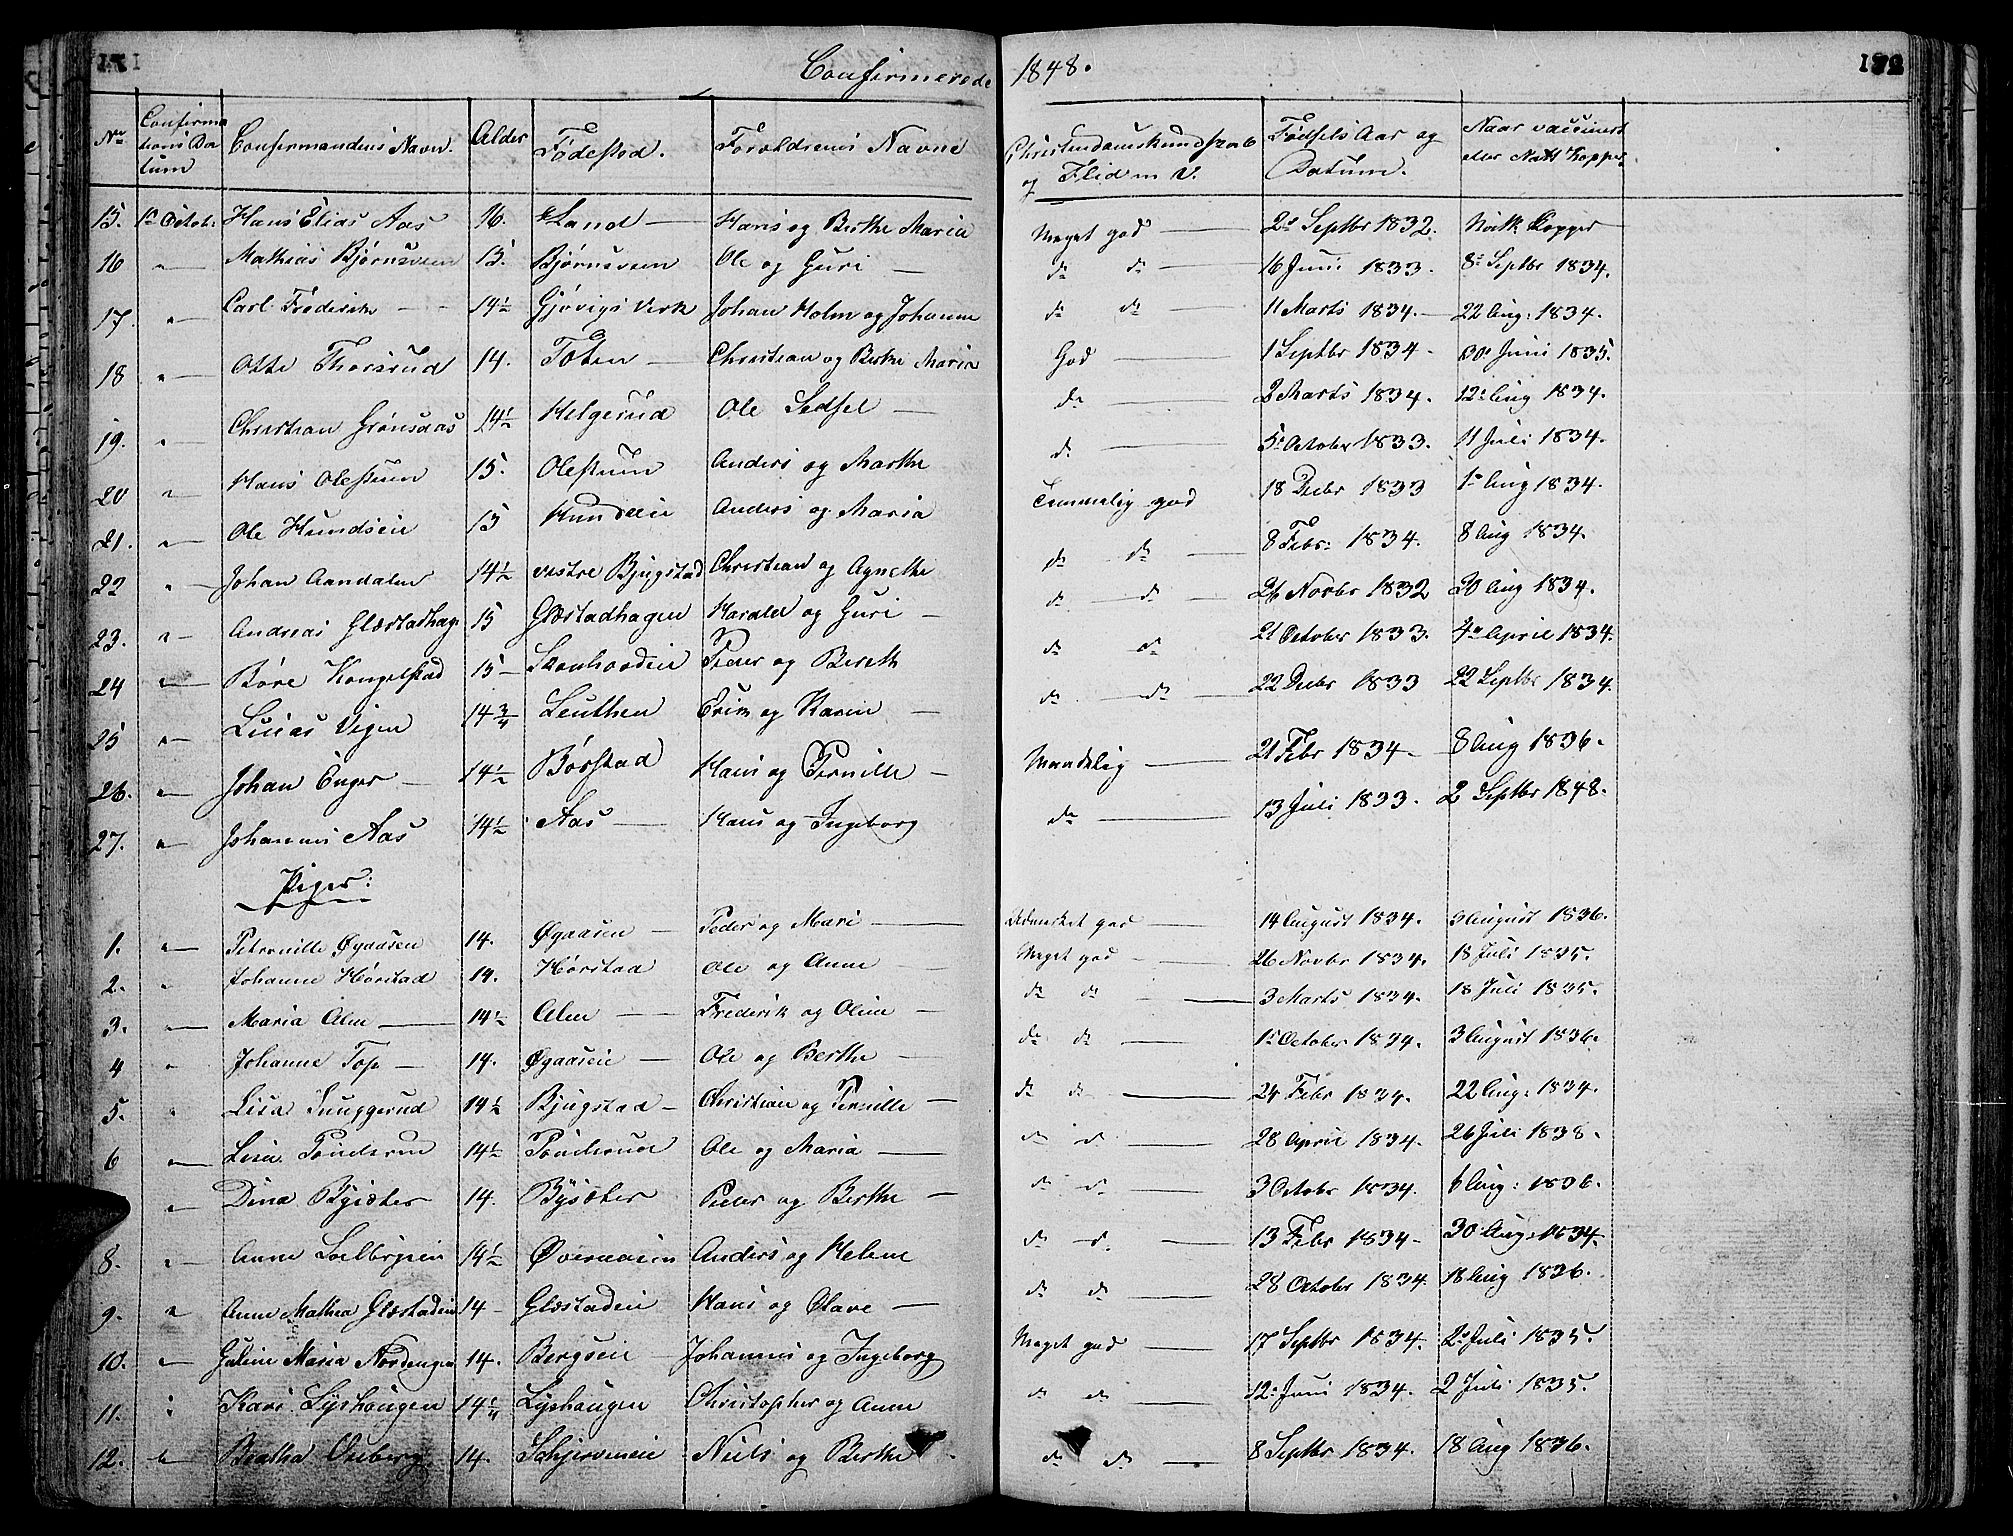 171
Confirmerede 1848.
172
No Confirmations Datum Confirmandens Navn. Alder Fødested. Forældrenes Navne Christendomskundskab og Flid m. V. Fødsels Aar og Datum. Naar vaccineret eller Natt. Kopper
15. 1e Octob: Hans Elias Aas 16. Land — Hans og Berthe Maria Meget god — 2e Septbr 1832. Natt. Kopper
16 " — Mathias Bjørnsveen 15. Bjørnsveen Ole og Guri — do do — 16 Juni 1833. 8e Septbr 1834.
17. " — Carl Frederik — 14½ Gjøvigs Verk Johan Holm og Johanne do do — 11 Marts 1834. — 22 Aug: 1834.
18 " — Otte Thorsrud 14. Toten — Christian og Berthe Maria God — 1 Septbr 1834. 30e Juni 1835.
19. " — Christian Grønsaas 14½ Helgerud Ole Sedsel — do — 2 Marts 1834. 12e Aug 1834.
20 " — Hans Olestuen 15. Olestuen Anders og Marthe d. — 5e October 1833. 11 Juli 1834.
21. " — Ole Hundseie 15 Anders og Maria Temmelig god 18 Decbr 1833 1e Aug 1834.
22 " — Johan Aandalen 14½ vestre Bjugstad Christian og Agnethe do do — 8 Febr: 1834. 8 Aug 1834.
23. " — Andreas Glæstadhage 15 Glæstadhagen Harald og Guri — do — do — 26 Novbr 1832 20 Aug 1834.
24 " — Børe Kongelstad 15 — Peder og Bereth do do 21 October 1833. 4e April 1834.
25 " — Lucas Vigen 14¾ Leuthen Erik og Karen — do — do — 22 Decbr 1833 22 Septbr 1834.
26. " — Johan Enger — 14½ Børstad Hans og Pernille — Maadelig — 21 Febr 1834 — 8 Aug 1836.
27. " — Johannes Aas 14½ Aas — Hans og Ingeborg do — 13 Juli 1833. 2 Septbr 1848.
Piger:
1. " — Petronille Øgaasen 14. Øgaasen — Peder og Mari — Udmærket god — 14 August 1834. 3 August 1836.
2. " Johanne Hørstad 14. Hørstad Ole og Anne — Meget god — 26 Novbr 1834. 18 Juli 1835.
3. " — Maria Alm — 14½ Alm — Frederik og Oline — do do — 3 Marts 1834. 18 Juli 1835.
4 " Johanne Top — 14. Øgaaseie — Ole og Berthe — do do — 1e October 1834. 3 August 1836.
5. " Lisa Snuggerud 14½ Bjugstad — Christian og Pernille — do do — 24 Febr 1834. 22 Aug: 1834.
6 " — Lisa 14½ Ole og Maria — do do — 28 April 1834. 26 Juli 1838.
" — Dina Bysæter 14. Bysæter Peder og Berthe — do do — 3 Octobr 1834. 6 Aug: 1836.
8. " — Anne 14½ Øveraasen Anders og Helene do do — 13 Febr 1834 — 30 Aug: 1834.
9. " Anne Mathea Glæstadeie 14 — Glæstadeie Hans og Olave — do do — 28 October 1834. 18 Aug 1836.
10. " — Guline Maria Nordengen 14. Bergseie Johannes og Ingeborg Meget god — 17 Septbr 1834. 2e Juli 1835.
11. " Kari Lyshougen 14¼ Lyshaugen Christopher og Anne do do — 12e Juni 1834. 2 Juli 1835.
12. " Beatha 14. Schjerveneie Niels og Berthe — do do — 8 Septbr 1834. 18 Aug 1836.